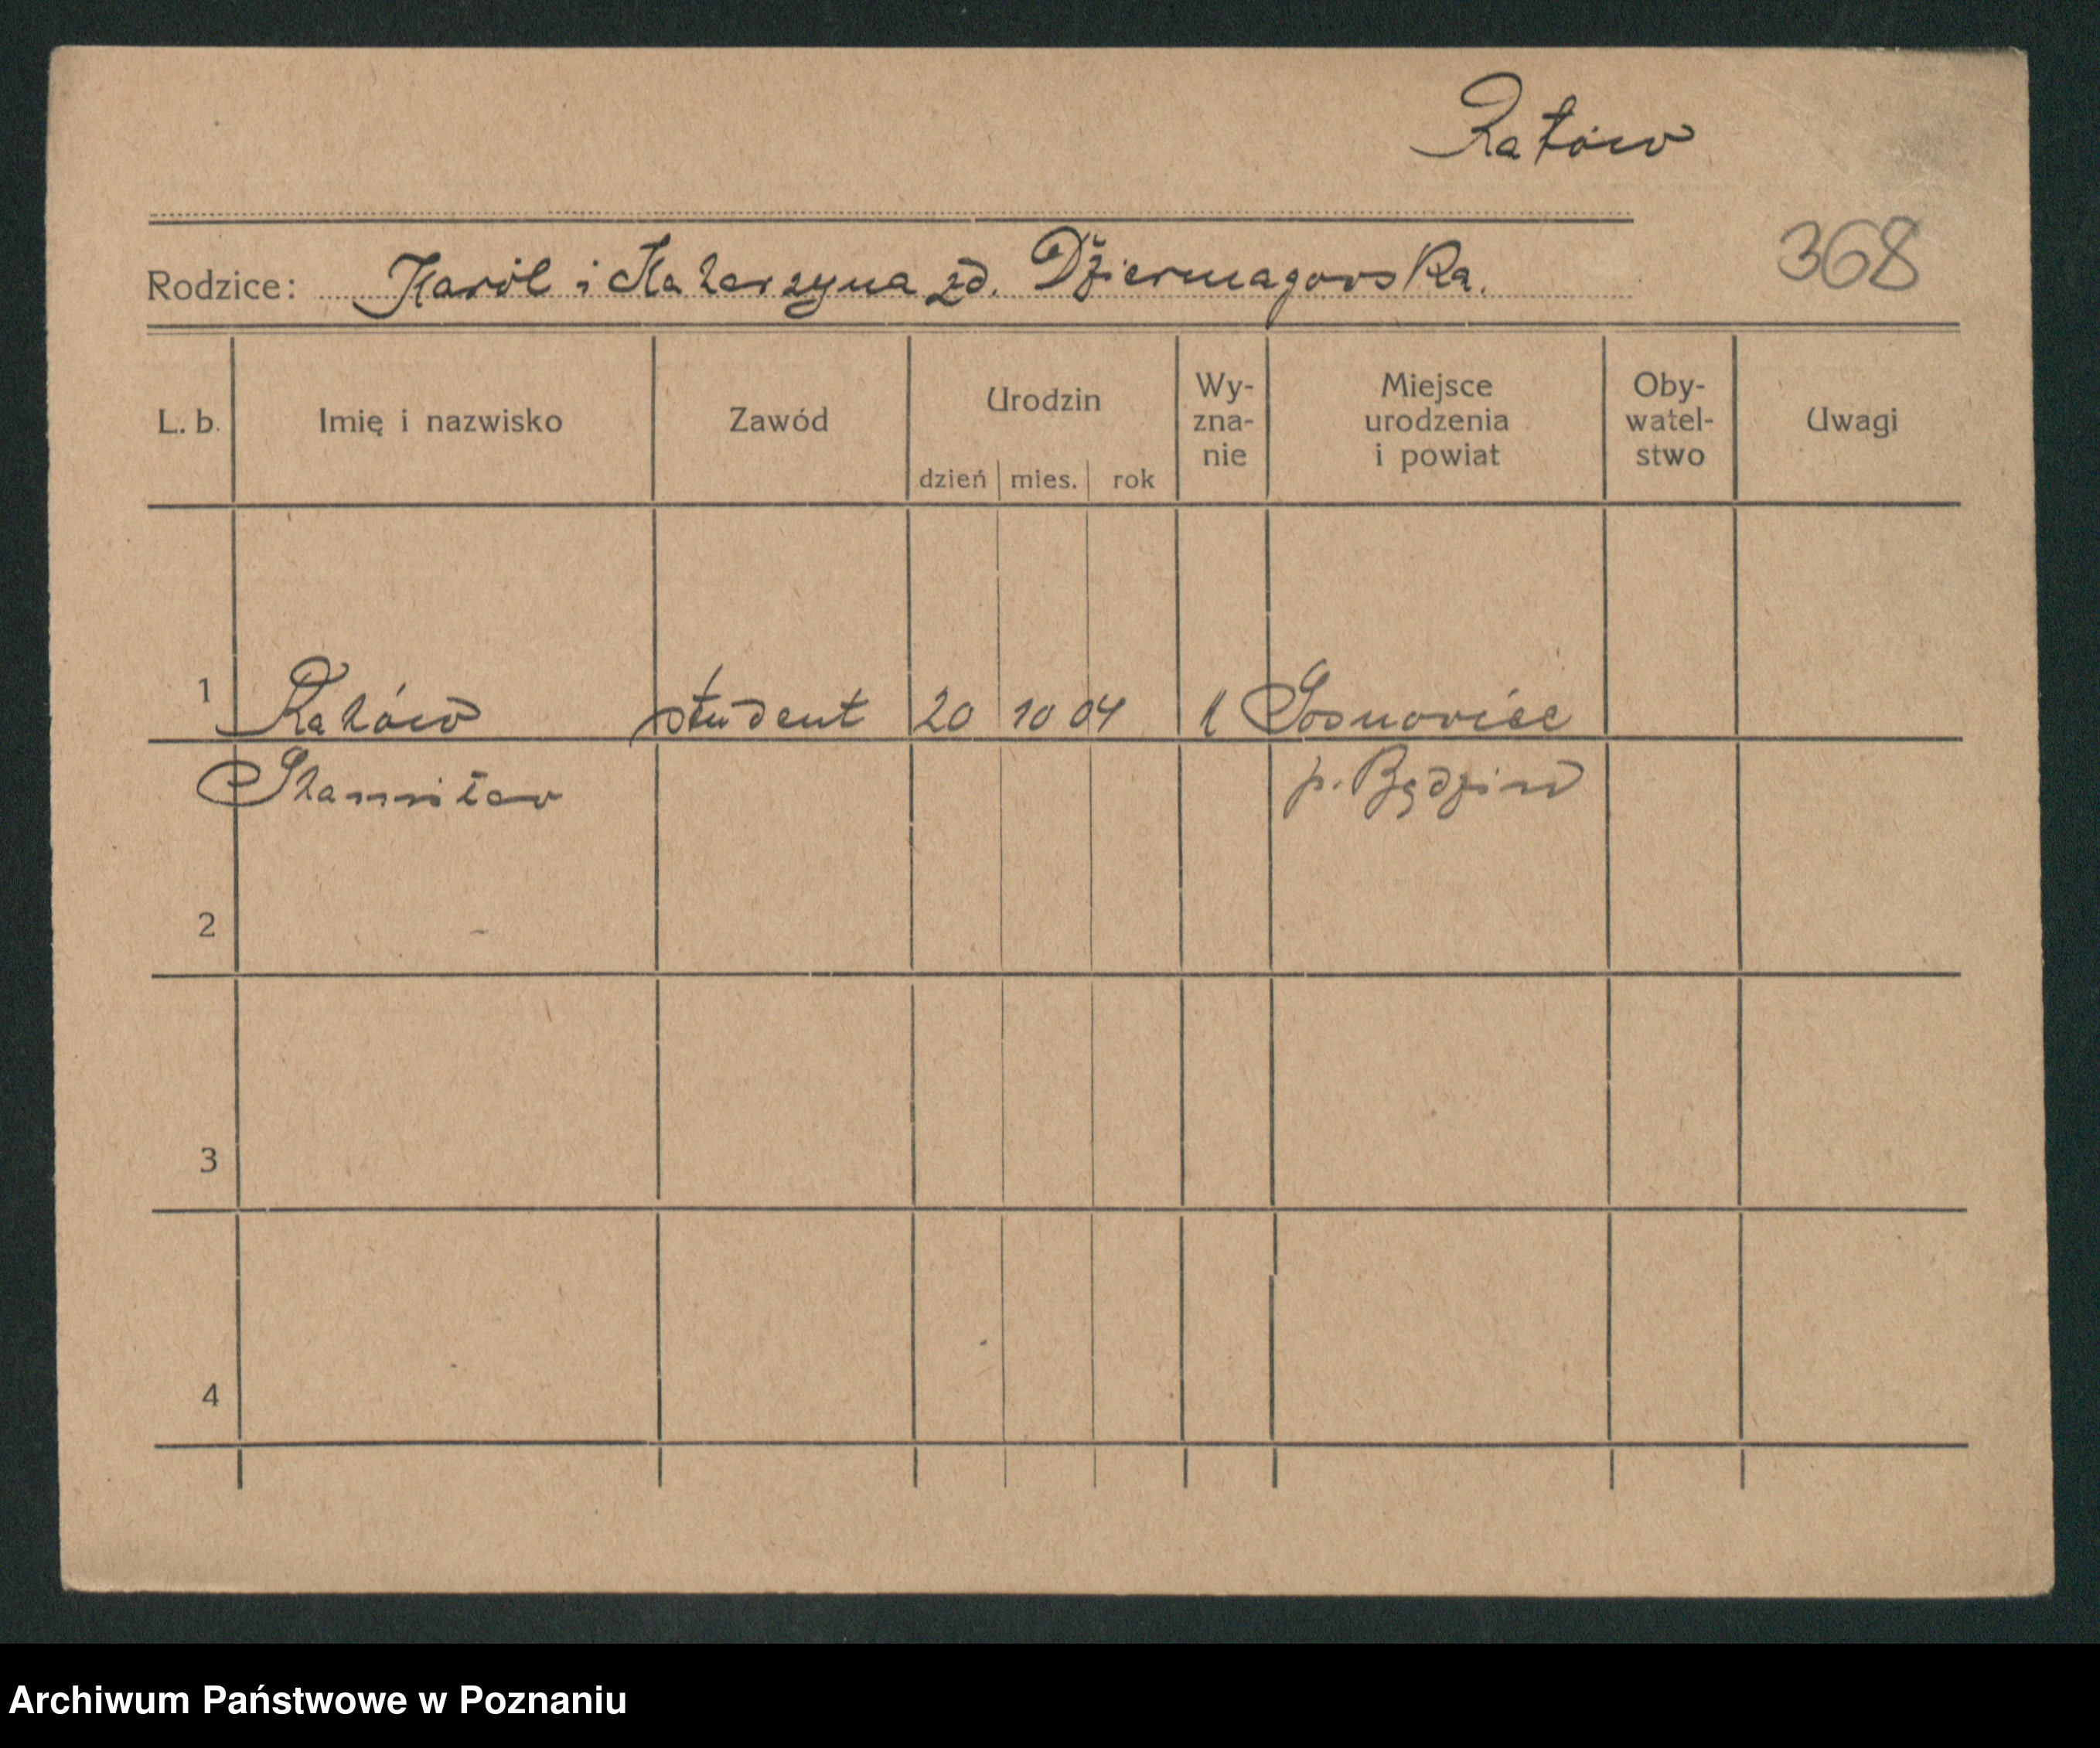 Ratów
368
Rodzice: Karól i Katarzyna zd. Dźiermagowska.
L. b. Imię i nazwisko Zawód Urodzin dzień mies. rok Wy- zna- nie Miejsce urodzenia i powiat Oby- watel- stwo Uwagi
1 Ratów student 20 10 04 Sosnowiec
Stanisław p. Będzin
2
3
4
Archiwum Państwowe w Poznaniu